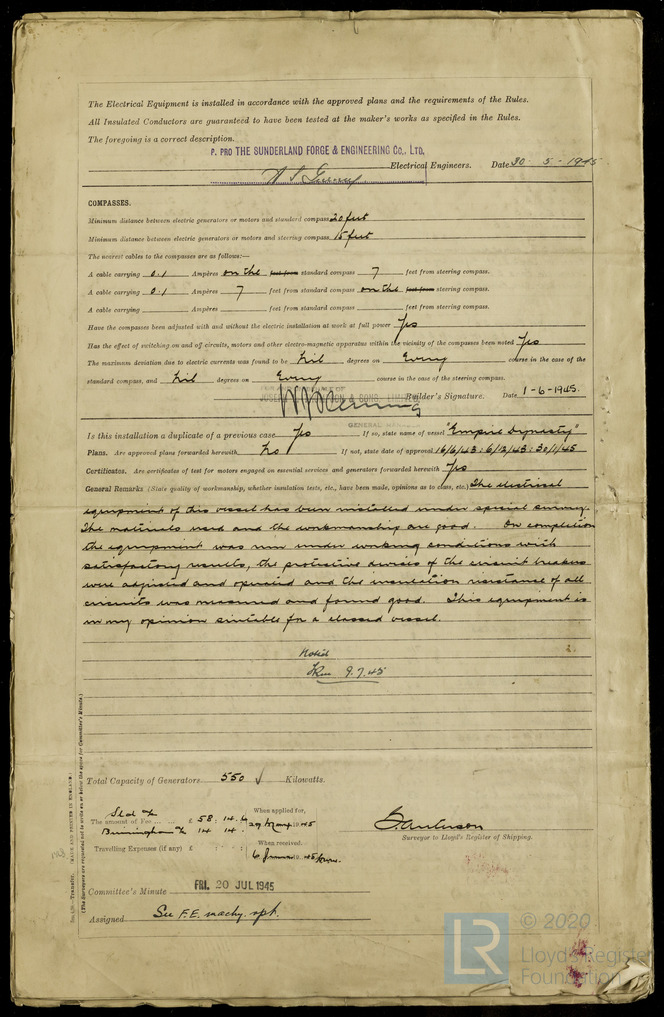 The Electrical Equipment is installed in accordance with the approved plans and the requirements of the Rules.
All Insulated Conductors are guaranteed to have been tested at the maker's works as specified in the Rules.
The foregoing is a correct description.
P. PRO THE SUNDERLAND FORGE & ENGINEERING CO., LTD.
Electrical Engineers. Date 30 5-1945
COMPASSES.
Minimum distance between electric generators or motors and standard compass 20 feet
Minimum distance between electric generators or motors and steering compass 15 feet
The nearest cables to the compasses are as follows:—
A cable carrying 0.1 Ampères on the feet from standard compass 7 feet from steering compass.
A cable carrying 0.1 Ampères 7 feet from standard compass on the feet from steering compass.
A cable carrying Ampères feet from standard compass feet from steering compass.
Have the compasses been adjusted with and without the electric installation at work at full power Yes
Has the effect of switching on and off circuits, motors and other electro-magnetic apparatus within the vicinity of the compasses been noted Yes
The maximum deviation due to electric currents was found to be Nil degrees on Every course in the case of the
standard compass, and Nil degrees on Every course in the case of the steering compass.
& SONS, LIMITED
Builder's Signature. Date 1-6-1945.
GENERAL MANAGER
Is this installation a duplicate of a previous case Yes If so, state name of vessel "Empire Dynasty"
Plans. Are approved plans forwarded herewith No If not, state date of approval 16/6/43: 6/12/43: 30/1/45
Certificates. Are certificates of test for motors engaged on essential services and generators forwarded herewith Yes
General Remarks (State quality of workmanship, whether insulation tests, etc., have been made, opinions as to class, etc.) The electrical
equipment of this vessel has been installed under special survey.
The materials used and the workmanship are good. On completion
the equipment was run under working conditions with
satisfactory results, the protective devices of the circuit breakers
were adjusted and operated and the insulation resistance of all
circuits was measured and found good. This equipment is
in my opinion suitable for a classed vessel.
Noted
9.7.45
Total Capacity of Generators 550 ✓ Kilowatts.
Sld
The amount of Fee ... ... £ 58 : 14 . 6
When applied for,
29 May 1945
Birmingham 14 14
Travelling Expenses (if any) £ : :
When received,
6 June 1945
Surveyor to Lloyd's Register of Shipping.
Committee's Minute FRI. 20 JUL 1945
Assigned See F.E. machy. rpt.
(The Surveyors are requested not to write on or below the space for Committee's Minute.)
(MADE AND PRINTED IN ENGLAND.)
Transfer.
LR
© 2020
Lloyd's Register
Foundation